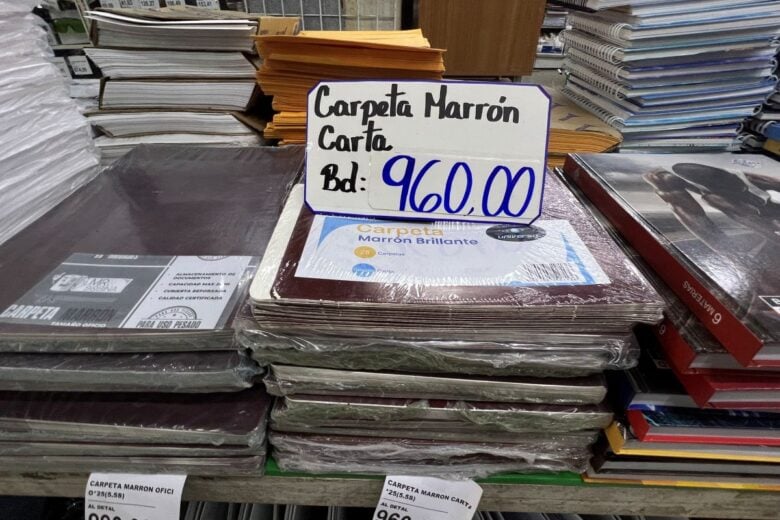 Carpeta Marrón
Carta
Bd: 960,00
Carpeta
Marrón Brillante
25 Carpetas
CARPETA MARRON
TAMAÑO OFICIO
ALMACENAMIENTO DE
DOCUMENTOS
CALIDAD CERTIFICADA
PARA USO PESADO
6 MATERIAS
CARPETA MARRON OFICI
O*25(5.58)
AL DETAL
CARPETA MARRON CARTA
*25(5.58)
AL DETAL
960